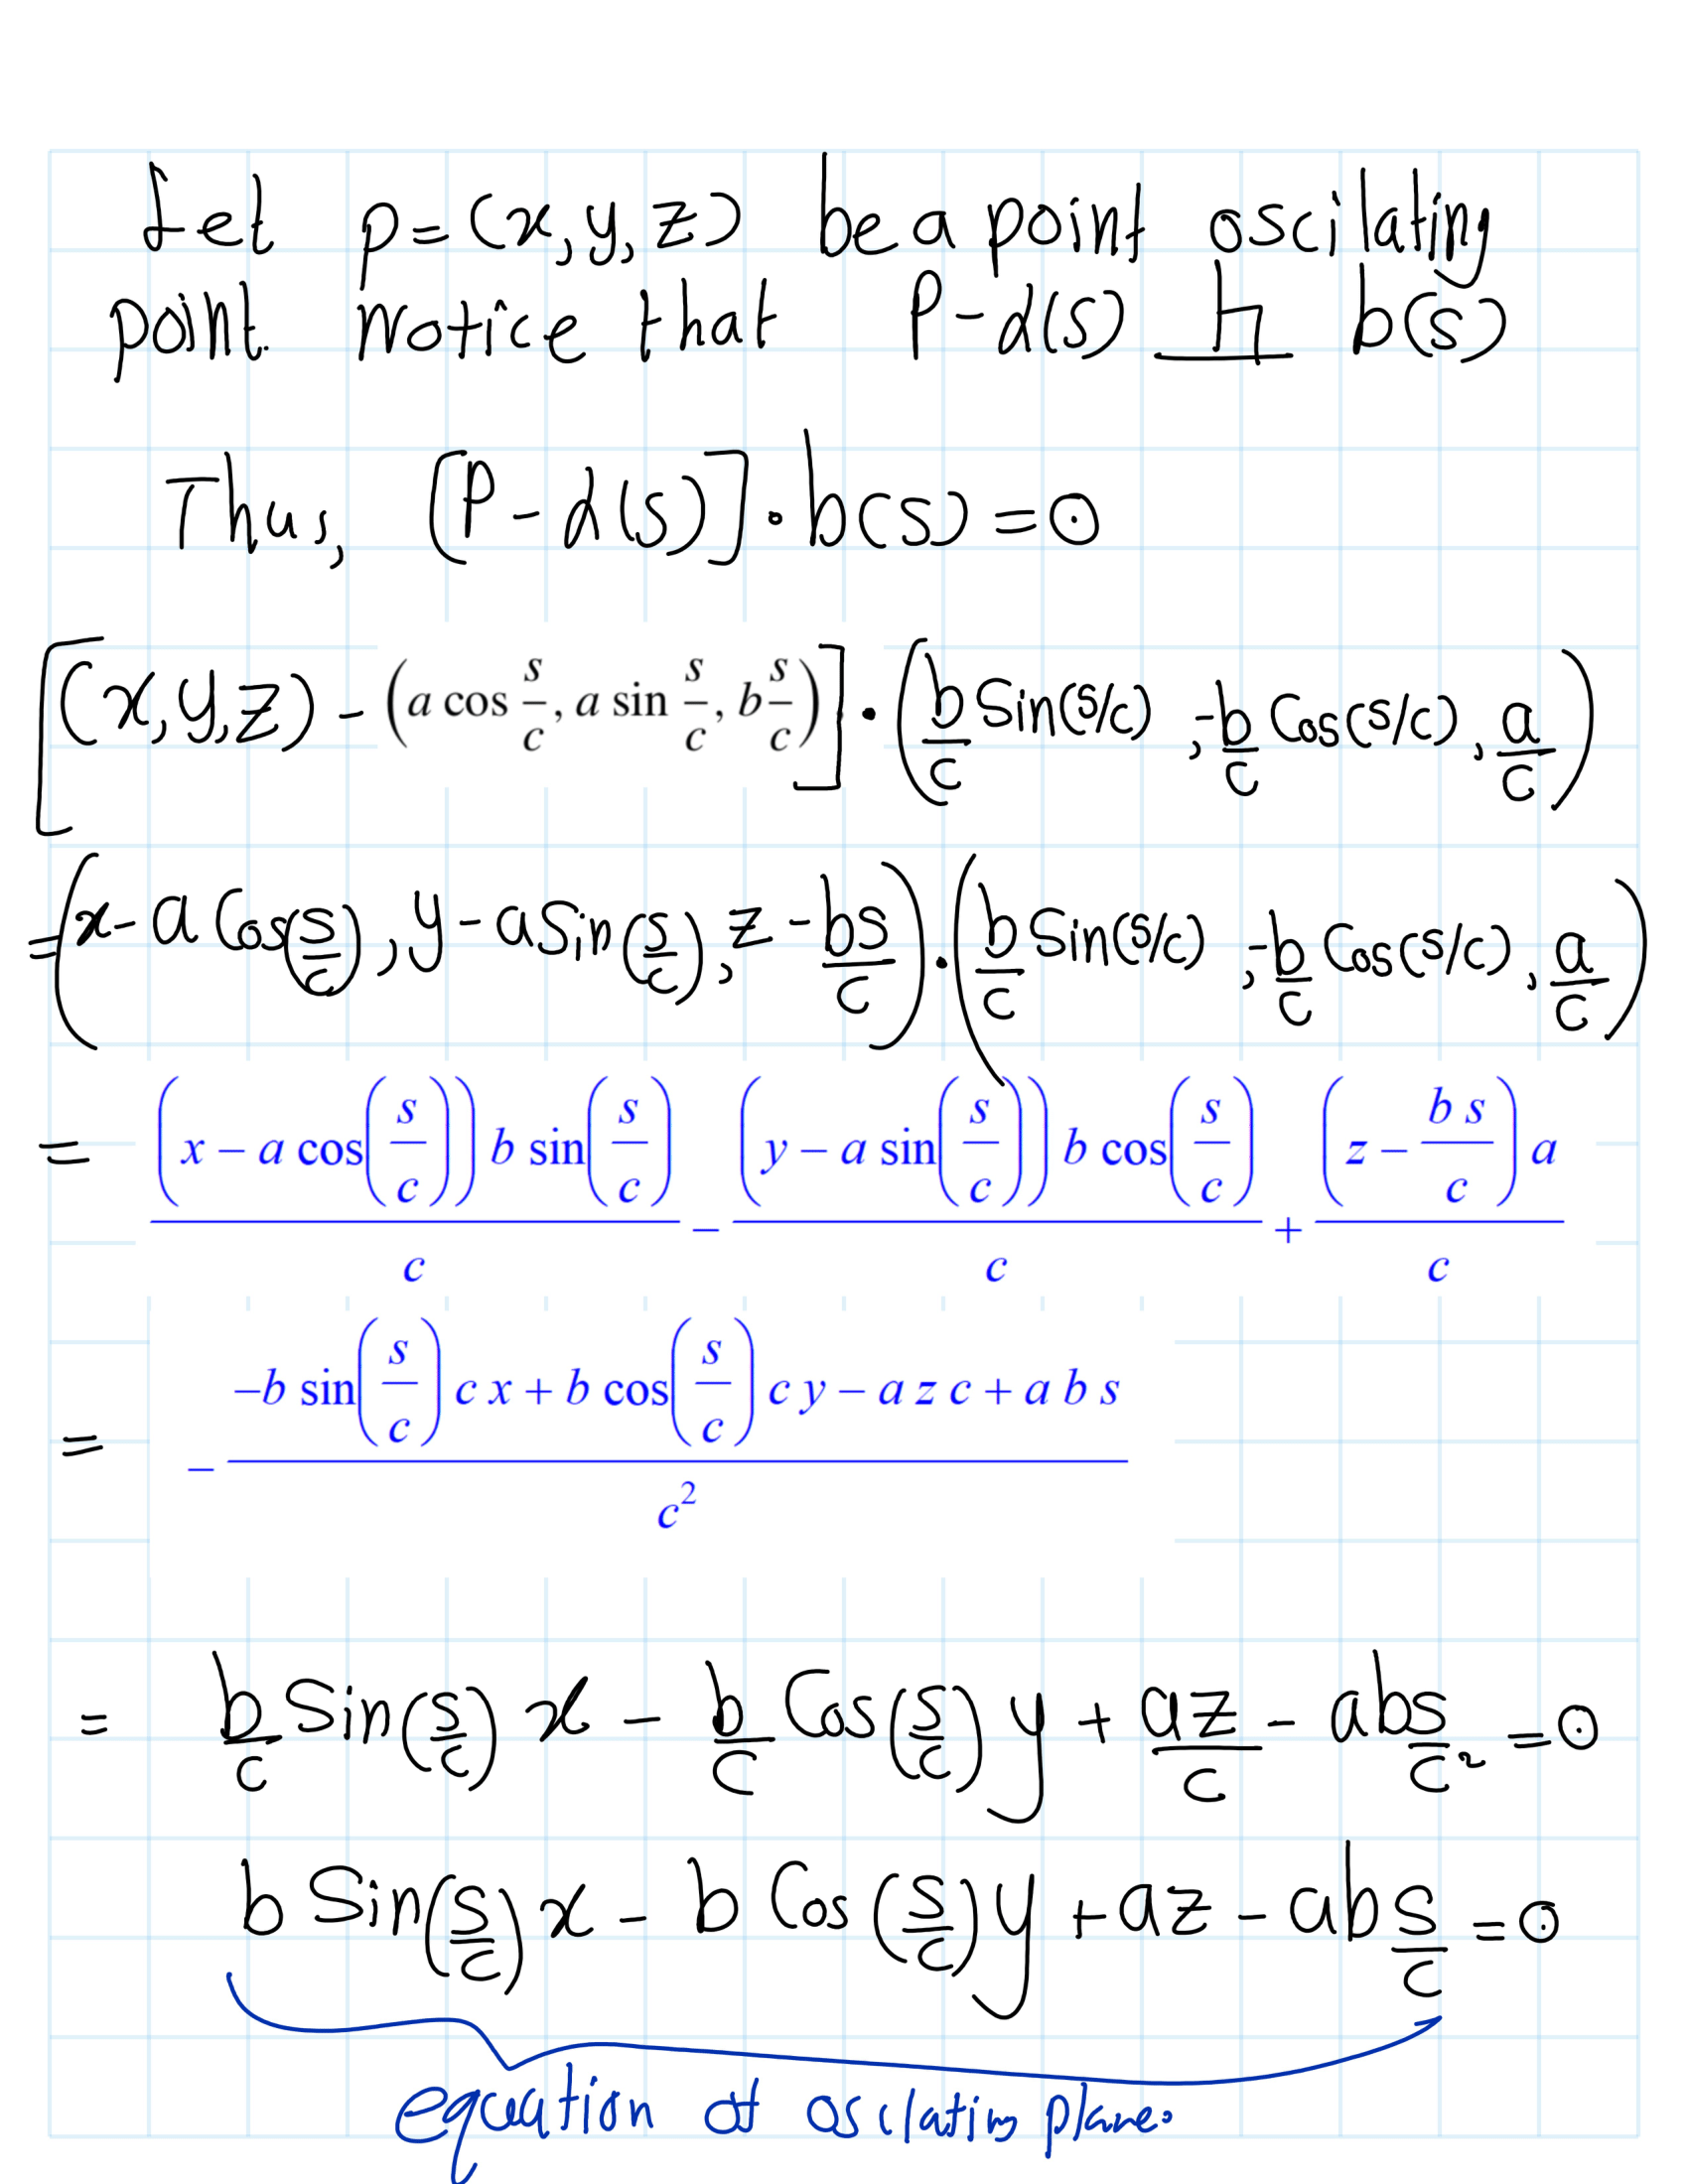 Let p=(x,y,z) be a point oscilating
point. Notice that P-α(s) ⊥ b(s)
Thus, [P-α(s)]·b(s)=0
[(x,y,z) - (a cos s/c, a sin s/c, b s/c)]·(b/c Sin(s/c), -b/c Cos(s/c), a/c)
=(x-a Cos(s/c), y-a Sin(s/c), z-bs/c)·(b/c Sin(s/c), -b/c Cos(s/c), a/c)
= (x - a cos(s/c)) b sin(s/c) / c - (y - a sin(s/c)) b cos(s/c) / c + (z - b s/c) a / c
= - (-b sin(s/c) c x + b cos(s/c) c y - a z c + a b s) / c²
= b/c Sin(s/c) x - b/c Cos(s/c) y + az/c - abs/c² =0
b Sin(s/c) x - b Cos(s/c) y + az - ab s/c =0
equation of oscilating plane.